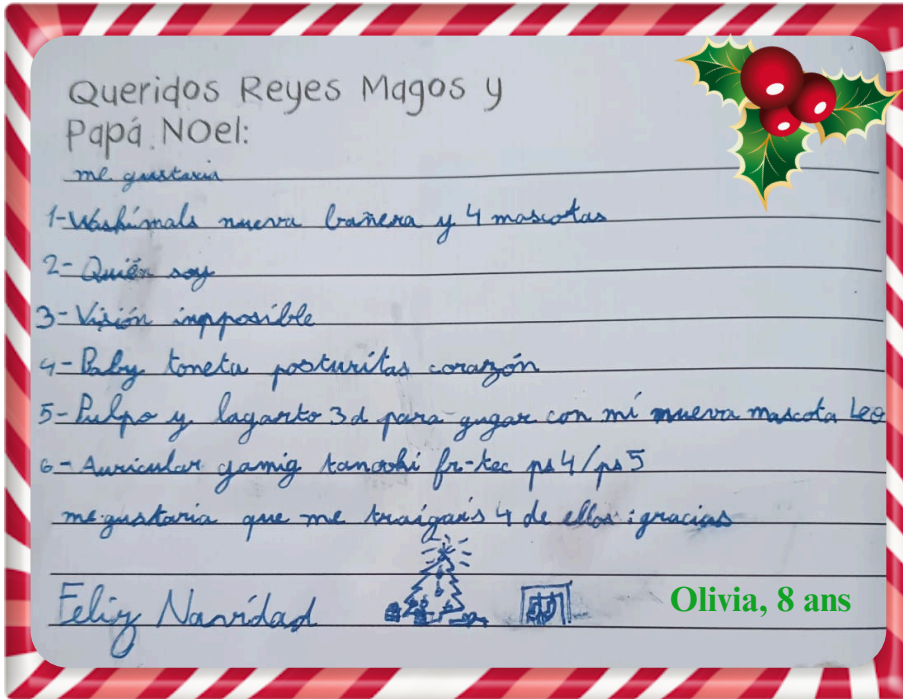 Queridos Reyes Magos y
Papá Noel:
me gustaria
1-Washimals nueva bañera y 4 mascotas
2-Quién soy
3-Visión impposible
4-Baby toneta posturítas corazón
5-Pulpo y lagarto 3d para gugar con mí nueva mascota Leo
6-Auricular gamig tanooki fr-tec ps4/ps5
me gustaria que me traigáis 4 de ellos: gracias
Feliz Navídad
Olivia, 8 ans